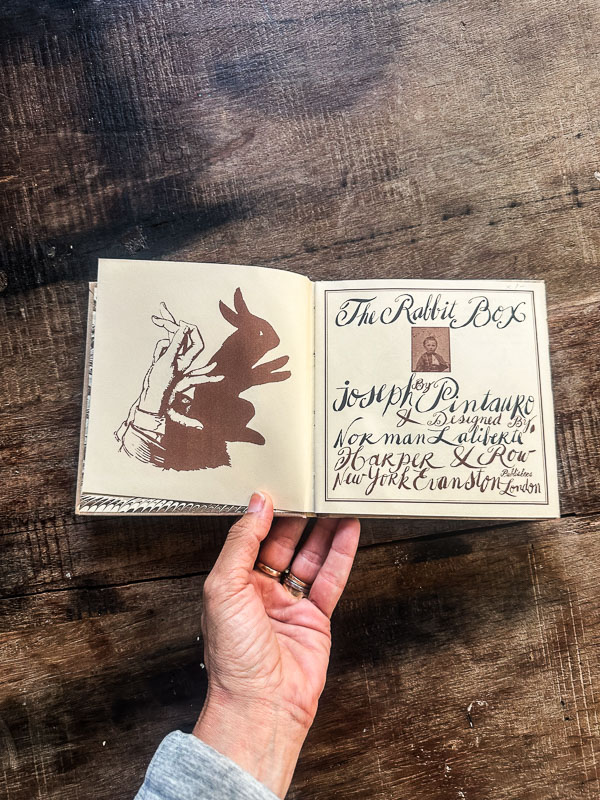 The Rabbit Box
By
Joseph Pintauro
& Designed By
Norman Laliberté
Harper & Row
Publishers
New York Evanston London